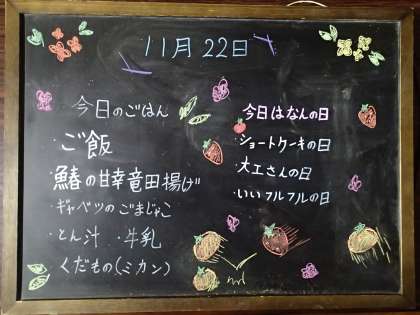 11月22日
今日のごはん
・ご飯
・鰆の甘辛竜田揚げ
・ギャベツのごまじゃこ
・とん汁 ・牛乳
くだもの(ミカン)
今日はなんの日
・ショートケーキの日
・大工さんの日
・いいフルフルの日